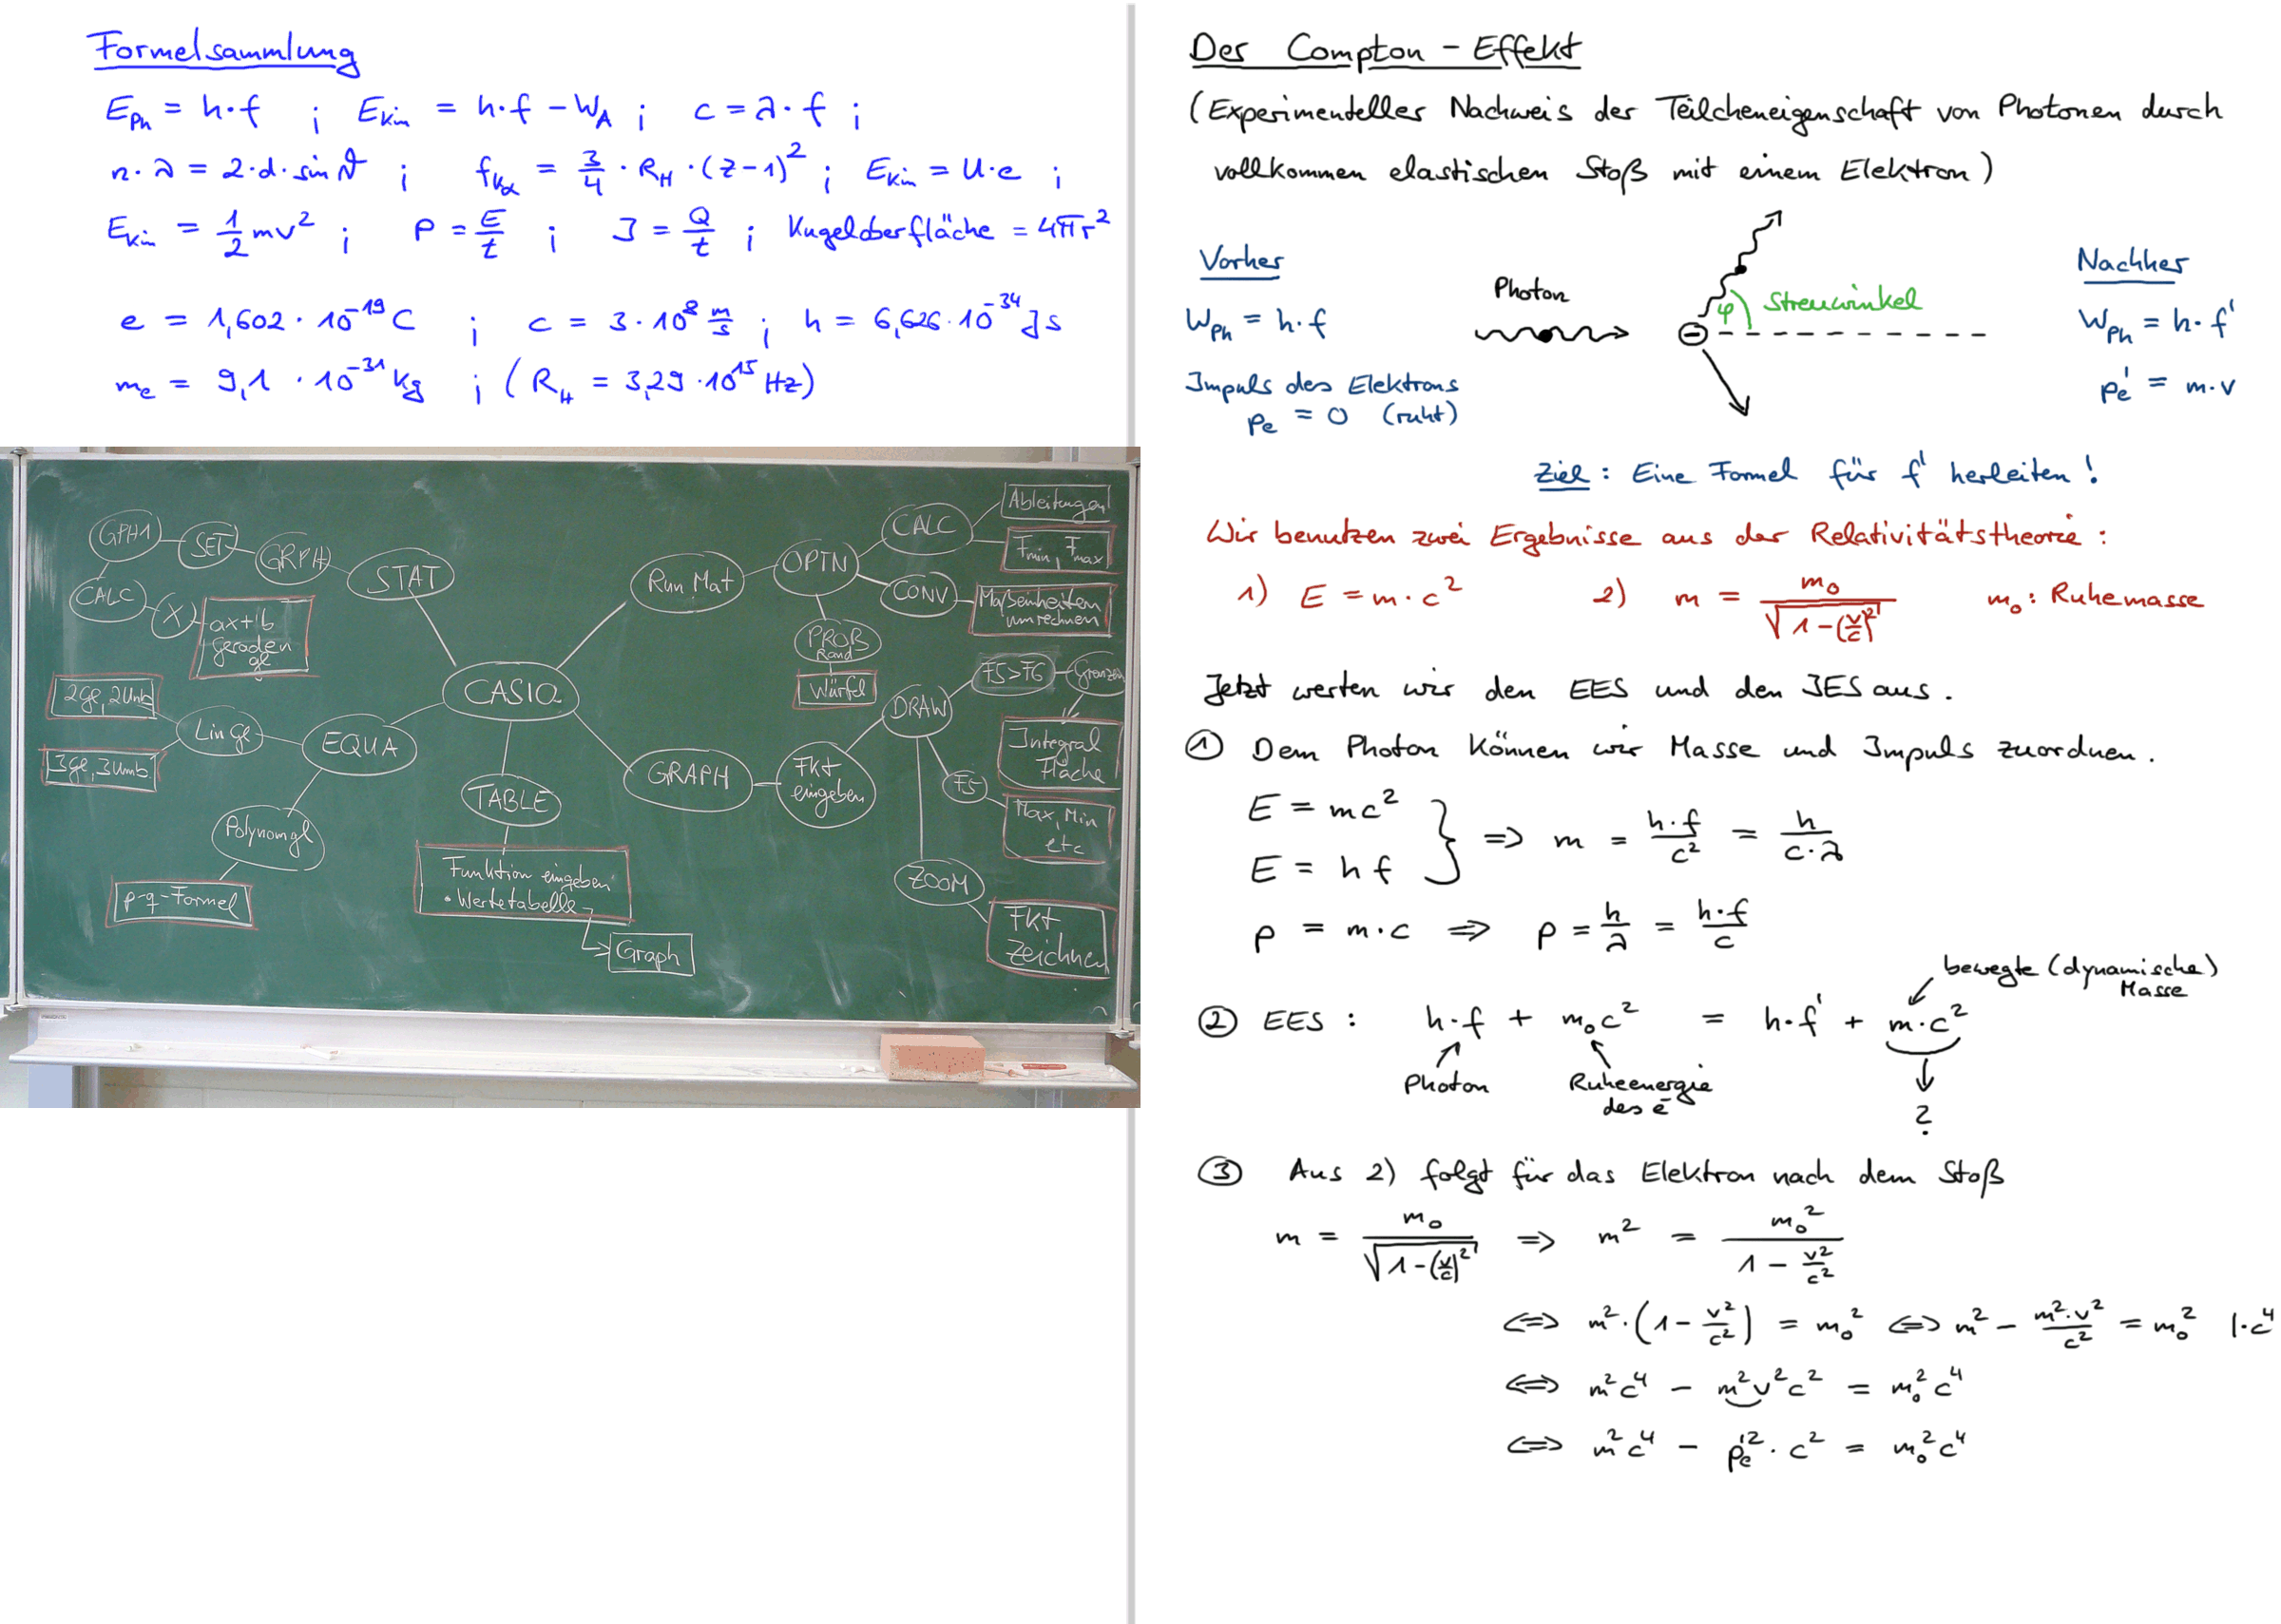 Formelsammlung
E_Ph = h·f ; E_Kin = h·f − W_A ; c = λ·f ;
n·λ = 2·d·sin ϑ ; f_Kα = 3/4 · R_H · (z−1)² ; E_Kin = U·e ;
E_Kin = 1/2 mv² ; P = E/t ; I = Q/t ; Kugeloberfläche = 4πr²
e = 1,602 · 10⁻¹⁹ C ; c = 3·10⁸ m/s ; h = 6,626·10⁻³⁴ Js
m_e = 9,1 · 10⁻³¹ kg ; (R_H = 3,29·10¹⁵ Hz)
GPH1
SET
GRPH
STAT
CALC
X
ax+b
geraden
gl
2Gl, 2Unb
3Gl, 3Unb
Lin Gl
EQUA
Polynomgl
p-q-Formel
CASIO
TABLE
Funktion eingeben
• Wertetabelle
Graph
Run Mat
OPTN
CALC
Ableitungen
Fmin, Fmax
CONV
Maßeinheiten
umrechnen
PROB
Rand
Würfel
GRAPH
Fkt
eingeben
DRAW
F5>F6
Grenzen
Integral
Fläche
F5
Max, Min
etc
ZOOM
Fkt
zeichnen
Der Compton-Effekt
(Experimenteller Nachweis der Teilcheneigenschaft von Photonen durch
vollkommen elastischen Stoß mit einem Elektron)
Vorher
W_Ph = h·f
Impuls des Elektrons
p_e = 0 (ruht)
Photon
φ Streuwinkel
Nachher
W_Ph = h·f'
p_e' = m·v
Ziel: Eine Formel für f' herleiten!
Wir benutzen zwei Ergebnisse aus der Relativitätstheorie:
1) E = m·c² 2) m = m₀/√(1−(v/c)²) m₀: Ruhemasse
Jetzt werten wir den EES und den IES aus.
① Dem Photon können wir Masse und Impuls zuordnen.
E = mc²
E = hf } ⇒ m = h·f/c² = h/(c·λ)
p = m·c ⇒ p = h/λ = h·f/c
bewegte (dynamische)
Masse
② EES: h·f + m₀c² = h·f' + m·c²
Photon
Ruheenergie
des e⁻
?
③ Aus 2) folgt für das Elektron nach dem Stoß
m = m₀/√(1−(v/c)²) ⇒ m² = m₀²/(1 − v²/c²)
⇔ m²·(1 − v²/c²) = m₀² ⇔ m² − m²·v²/c² = m₀² |·c⁴
⇔ m²c⁴ − m²v²c² = m₀²c⁴
⇔ m²c⁴ − p_e'²·c² = m₀²c⁴